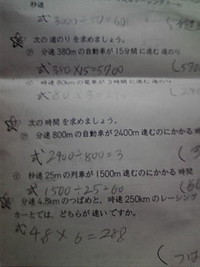 秒速
次の道のりを求めましょう。
分速380mの自動車が15分間に進む道のり
式 380×15=5700
次の時間を求めましょう。
分速800mの自動車が2400m進むのにかかる時間
式 2400÷800=3
秒速25mの列車が1500m進むのにかかる時間
式 1500÷25=60
分速4.8kmのつばめと、時速250kmのレーシング
カーとでは、どちらが速いですか。
式 48×6=288